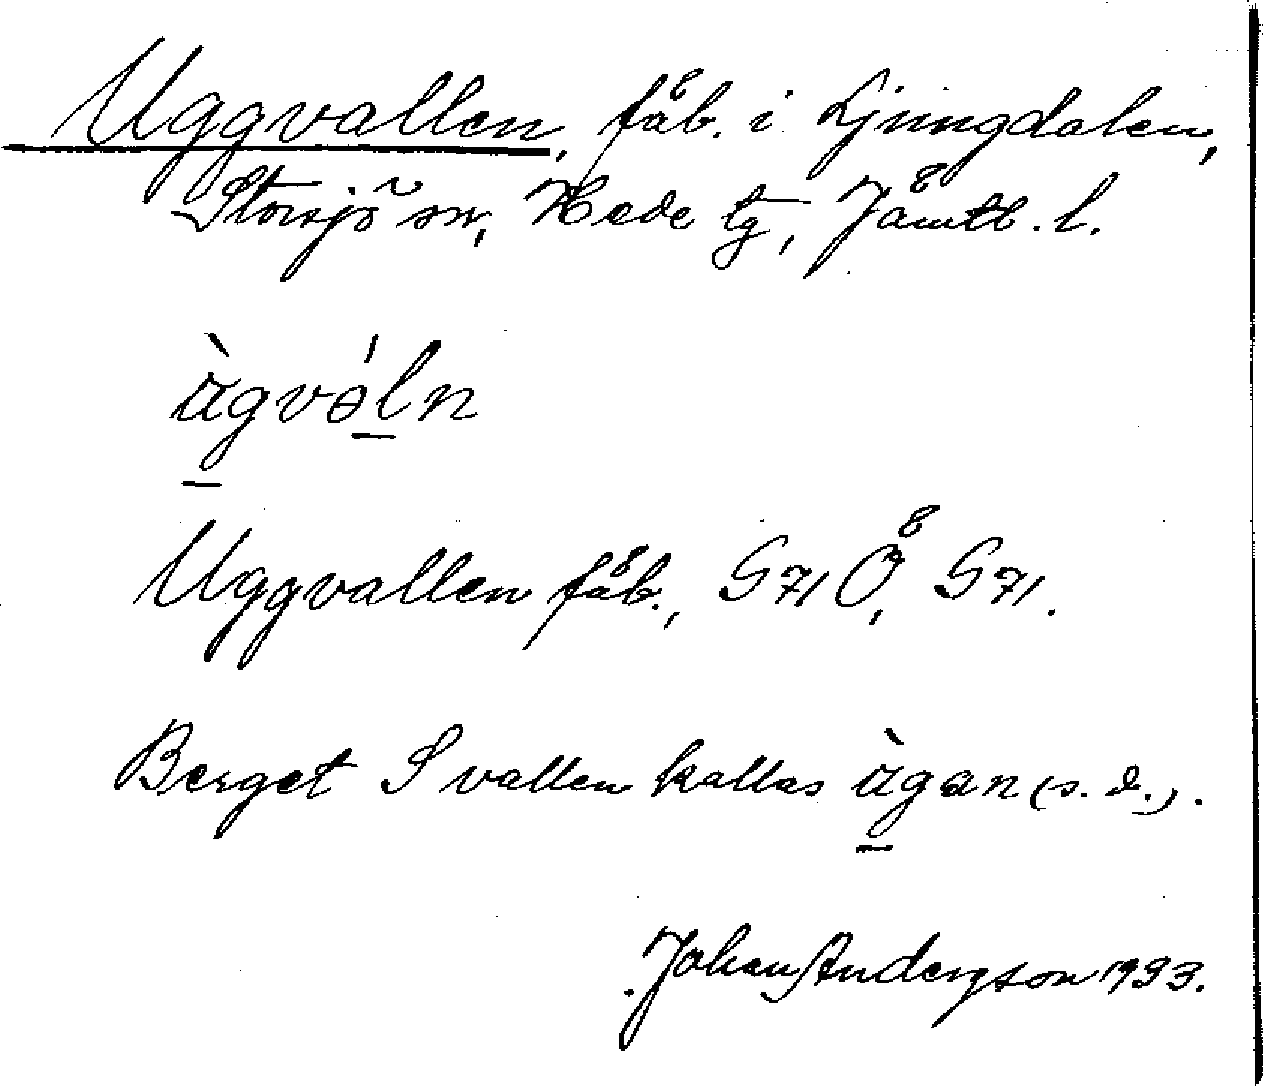 Uggvallen, fäb. i Ljungdalen,
Storsjö sn, Hede tg, Jämtl. l.
ùgvə́ln
Uggvallen fäb., G71 Ö, G71.
Berget S vallen kallas ùgan (s. d.).
Johan Anderson 1933.